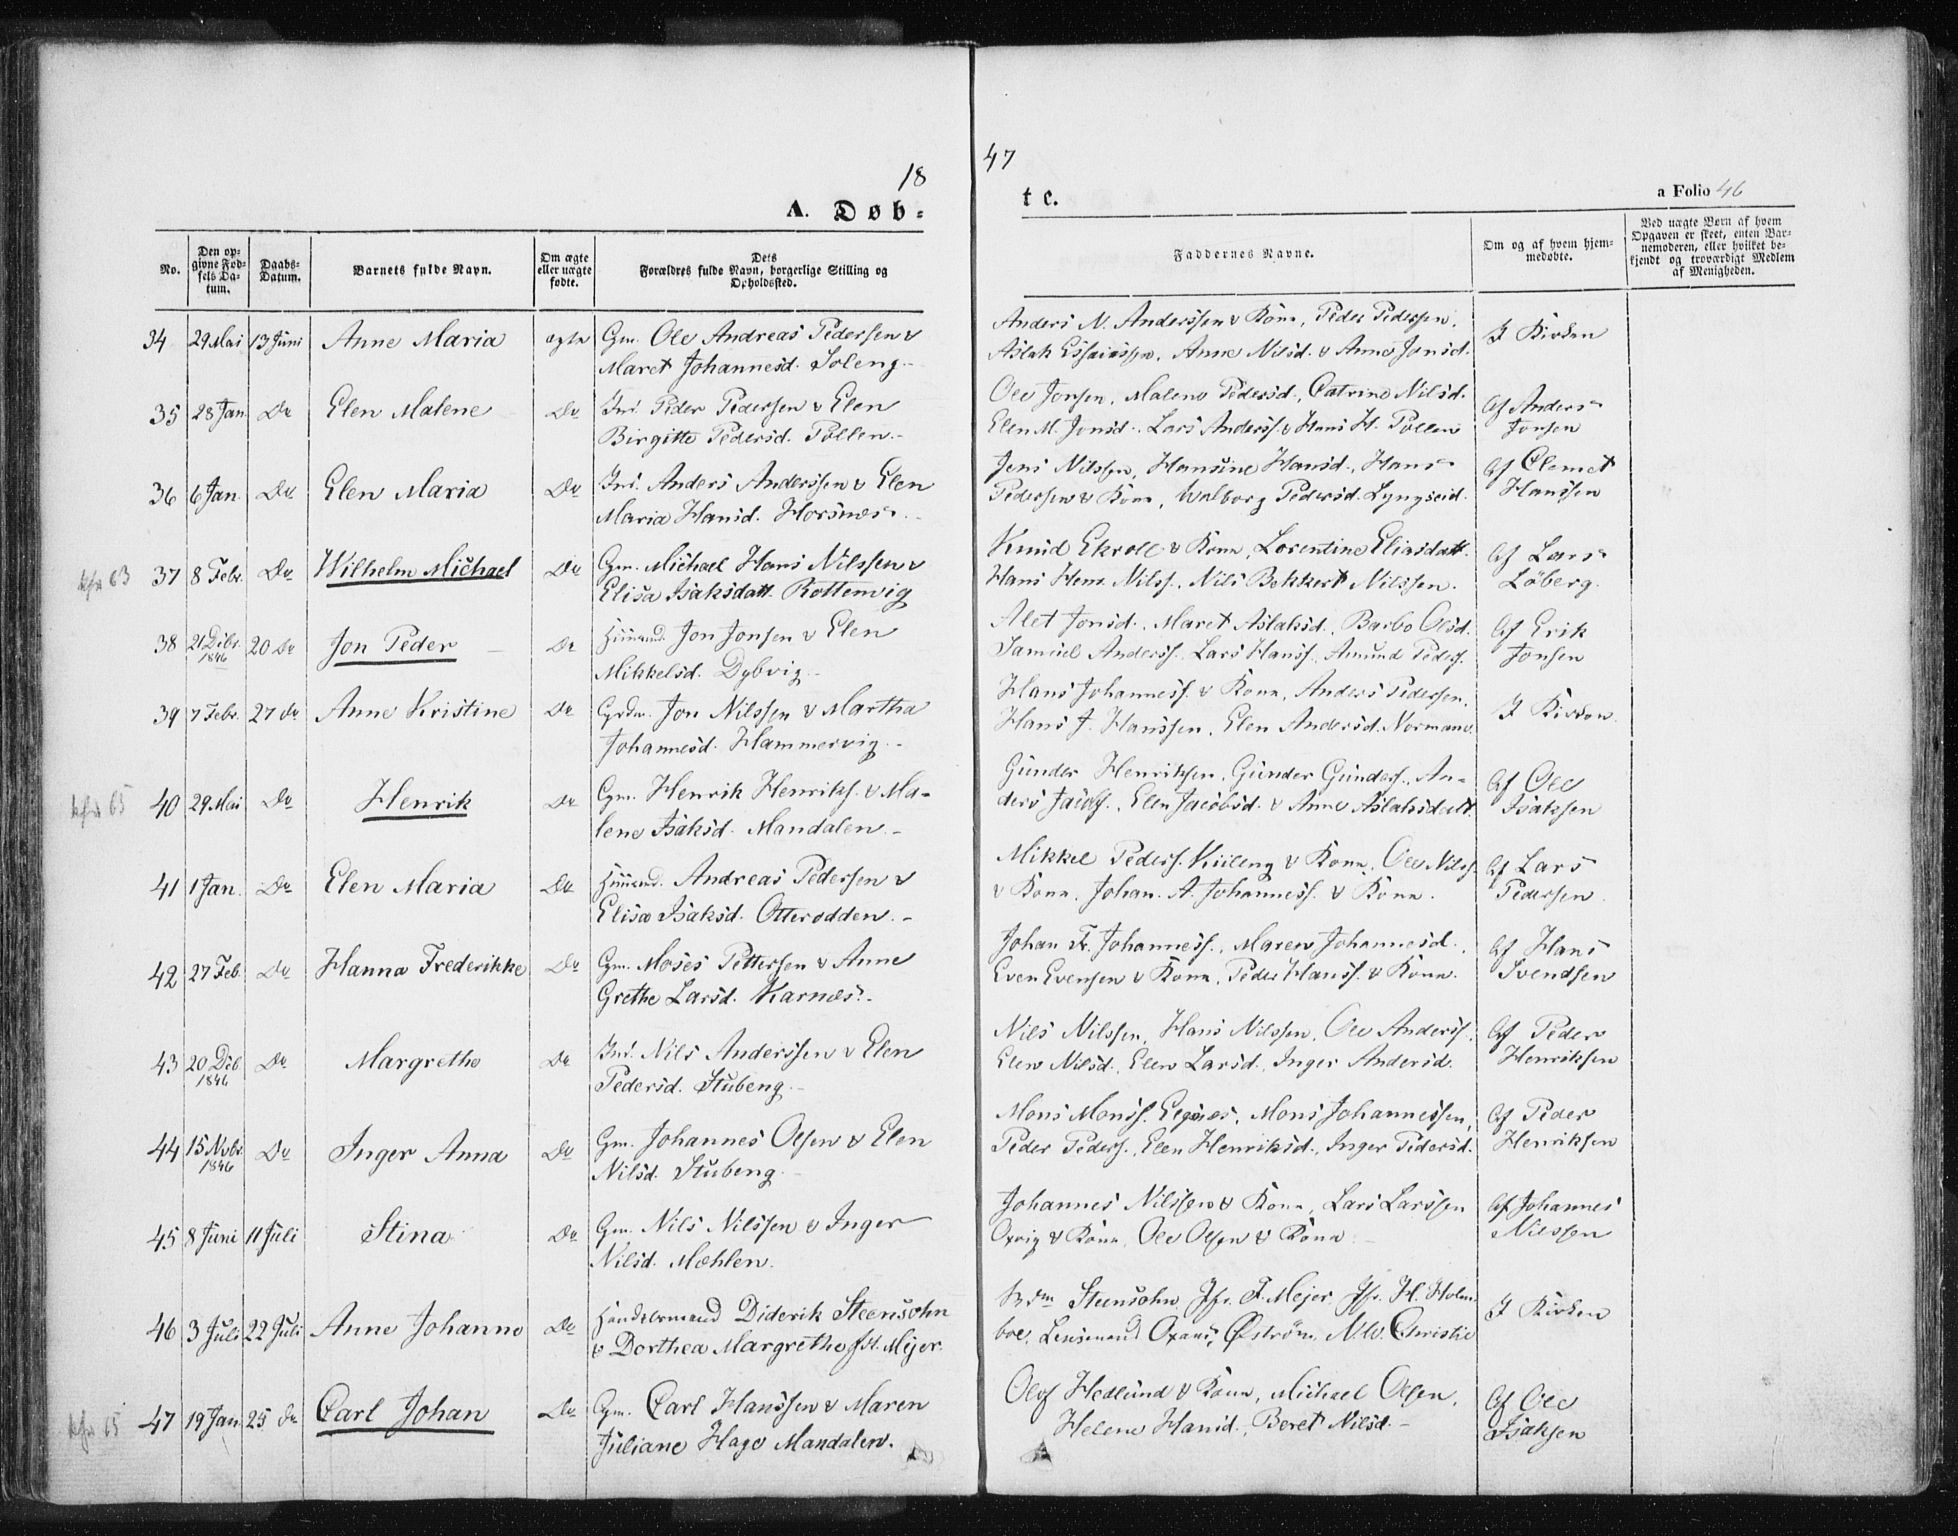 18
47
A. Døb-
te.
a Folio 46
No.
Den opgivne Fødsels Datum.
Daabs-Datum.
Barnets fulde Navn.
Om ægte eller uægte fødte.
Dets Forældres fulde Navn, borgerlige Stilling og Opholdssted.
Faddernes Navne.
Om og af hvem hjemmedøbte.
Ved uægte Børn af hvem Opgaven er skeet, enten Barnemoderen, eller hvilket bekjendt og troværdigt Medlem af Menigheden.
34 29 Mai 13 Juni Anne Maria ægte Gm. Ole Andreas Pedersen &
Maret Johannesd. Soleng.
Anders N. Anderssen & Kone, Peder Pedersen,
Aslak Essaiassen, Anne Nilsd. & Anne Jonsd.
I Kirken
35 28 Jan. Do Elen Malene Do Ind. Peder Pedersen & Elen
Birgitte Pedersd. Pollen.
Ole Jonsen, Malene Pedersd., Catrine Nilsd.
Elen M. Jonsd., Lars Anderss. & Hans H. Pollen
Af Anders
Jonsen
36 6 Jan. Do Elen Maria Do Ind. Anders Anderssen & Elen
Maria Hansd. Horsnes.
Jens Nilssen, Hansine Hansd., Hans
Pederssen & Kone, Walborg Pedersd. Lyngseid.
Af Clemet
Hanssen
kfr 63
37 8 Febr. Do Wilhelm Michael Do Gm. Michael Hans Nilssen &
Elisa Isaksdatt. Rottenvig
Knud Ekroll & Kone, Lorentine Eliasdatt.
Hans Henr. Nilss., Nils Bekkert Nilssen.
Af Lars
Löberg.
38 21 Debr. 1846 20 Do Jon Peder Do Huusmd. Jon Jonsen & Elen
Mikkelsd. Dybvig.
Alet Jonsd., Maret Aslaksd., Barbo Olsd.
Samuel Anderss., Lars Hanss., Amund Peders.
Af Erik
Jonsen
39 7 Febr. 27 do Anne Kristine Do Jon Nilssen & Martha
Johannesd. Hammervig.
Hans Johanness. & Kone, Anders Pedersen,
Hans J. Hanssen, Elen Andersd. Normand.
I Kirken
kfr 65
40 29 Mai Do Henrik Do Gm. Henrik Henriks. & Ma-
lene Isaksd. Mandalen.
Gunder Henriksen, Gunder Gunders., An-
ders Jacobs., Elen Jacobsd. & Anne Aslaksdatt.
Af Ole
Isaksen
41 1 Jan. Do Elen Maria Do Huusmd. Andreas Pedersen &
Elisa Isaksd. Otterodden.
Mikkel Peders. Kiileng & Kone, Ole Nilss.
& Kone, Johan A. Johanness. & Kone.
Af Lars
Pedersen
42 27 Feb. Do Hanna Frederikke Do Gm. Moses Pettersen & Anne
Grethe Larsd. Karnes.
Johan Fr. Johanness., Maren Johannesd.,
Even Evensen & Kone, Peder Hanss. & Kone.
Af Hans
Svendsen
43 20 Deb. 1846 Do Margrethe Do Ind. Nils Anderssen & Elen
Pedersd. Stubeng.
Nils Nilssen, Hans Nilssen, Ole Anderss.,
Elen Nilsd., Elen Larsd., Inger Andersd.
Af Peder
Henriksen
44 15 Novbr. 1846 Do Inger Anna Do Gm. Johannes Olsen & Elen
Nilsd. Stubeng.
Mons Monss. Elgsnes, Mons Johannessen,
Peder Peders., Elen Henriksd., Inger Pedersd.
Af Peder
Henriksen
45 8 Juni 11 Juli Stina Do Gm. Nils Nilssen & Inger
Nilsd. Mæhlen.
Johannes Nilssen & Kone, Lars Larssen
Oxvig & Kone, Ole Olsen & Kone
Af Johannes
Nilssen
46 3 Juli 22 Juli Anne Johanne Do Handelsmand Diderik Steensohn
& Dorthea Margrethe f. Mejer.
Mdm Steensohn, Jfr. F. Mejer, Jfr. H. Holm-
boe, Lensmand Oxaas, Øström, N. W. Christie
I Kirken
kfr 65
47 19 Jan. 25 do Carl Johan Do Gm. Carl Hanssen & Maren
Juliane Hage Mandalen.
Olof Hedlund & Kone, Michael Olsen,
Helene Hansd., Beret Nilsd.
Af Ole
Isaksen